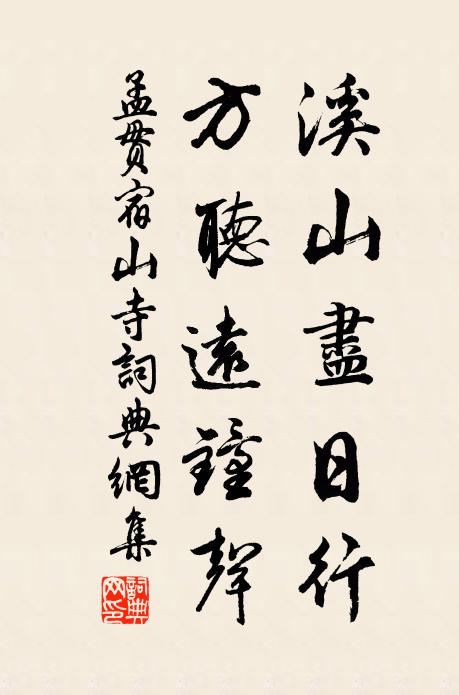 溪山盡日行
方聽遠鐘聲
孟貫宿山寺詞典網集
詞典網印